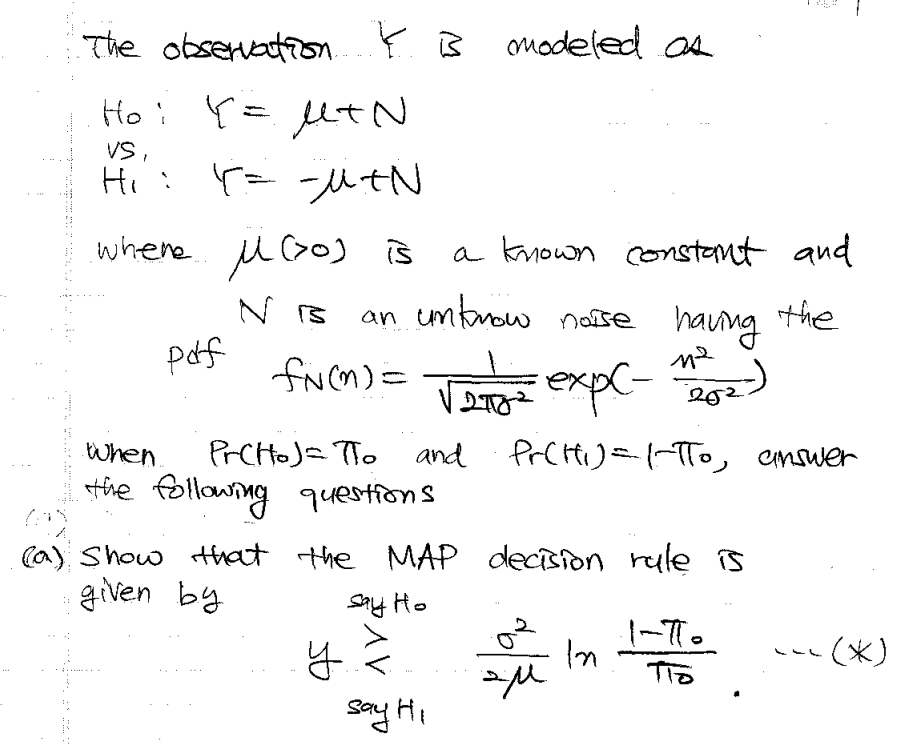 The observation Y is modeled as
H₀ : Y = μ + N
vs,
H₁ : Y = -μ + N
where μ (>0) is a known constant and
N is an unknow noise having the
pdf f_N(n) = 1/√(2πσ²) exp(- n²/2σ²)
when Pr(H₀) = π₀ and Pr(H₁) = 1-π₀, answer
the following questions
(a) Show that the MAP decision rule is
given by
say H₀
y ≷ σ²/2μ ln (1-π₀)/π₀ . --- (*)
say H₁